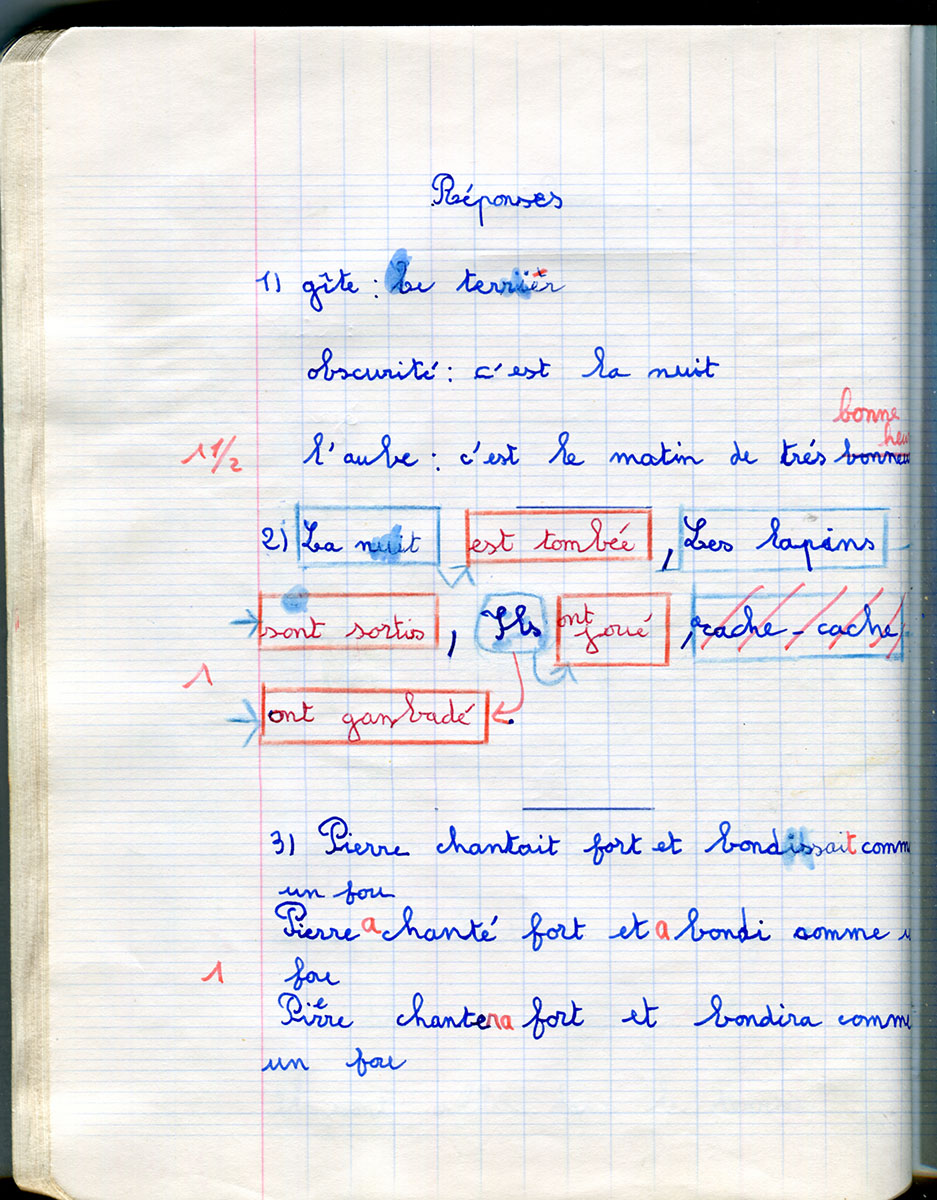 Réponses
1) gîte : Le terrier
obscurité : c'est la nuit
bonne
1 1/2 l'aube : c'est le matin de trés
2) La nuit est tombée , Les lapins
sont sortis , Ils ont joué , cache-cache
1
ont gambadé .
3) Pierre chantait fort et bondissait comm
un fou
Pierre a chanté fort et a bondi comme
1 fou
Pierre chantera fort et bondira comme
un fou